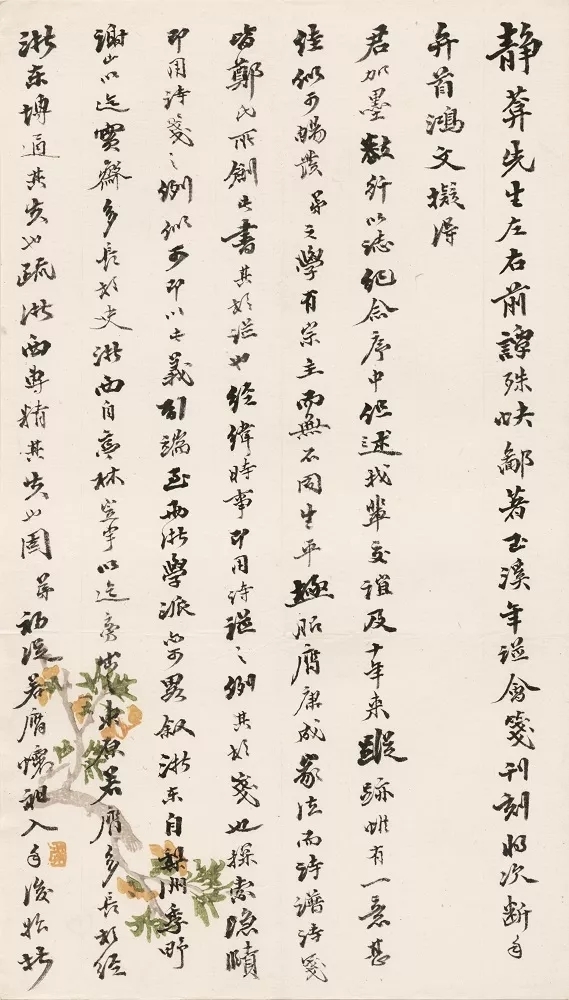 靜葊先生左右前譚殊快鄙著玉溪年譜會箋刊刻將次斷手
弁首鴻文擬得
君加墨數行以志紀念序中但述我輩交誼及十年來蹤跡惟有一意甚
佳似可暢發弟之學有宗主而無不同生平極服膺康成家法而詩譜詩箋
皆鄭氏所創此書其於譜也經緯時事即用詩譜之例其於箋也探索隱賾
即用詩箋之例似可即以此義引端至兩浙學派亦可略叙浙東自梨洲季野
謝山以迄實齋多長於史浙西自亭林定宇以迄東原若膺多長於經
浙東博通其失也疏浙西專精其失也固弟初從若膺懷祖入手後始折